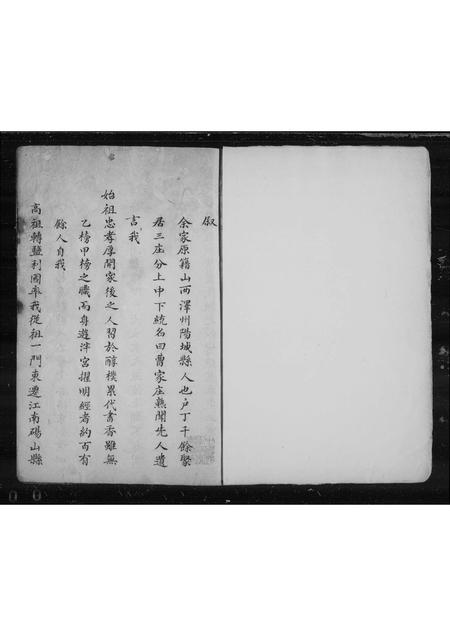 叙
余家原籍山西澤州陽城縣人也戶丁千餘聚
居三庄分上中下統名曰曹家庄熟聞先人遺
言我
始祖忠孝厚開家後之人習於醇樸累代書香雖無
乙榜甲榜之職而身遊泮宮擢明經者約百有
餘人自我
高祖轉鹽利國率我從祖一門東遷江南碭山縣